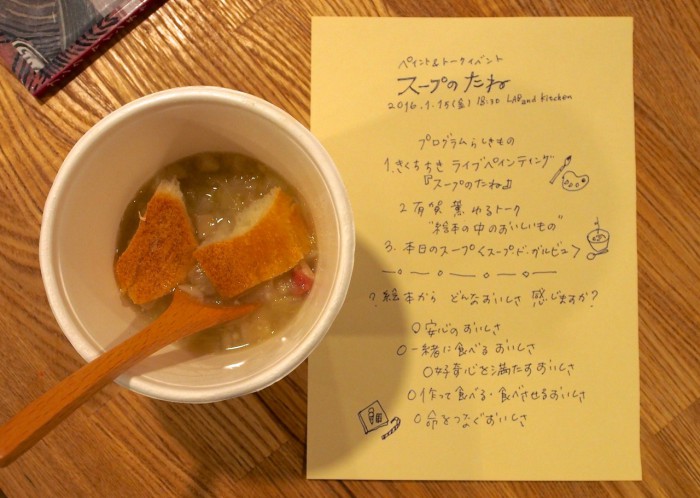 ペイント&トークイベント
スープのたね
2016.1.15(金) 18:30 LAB and Kitchen
プログラムらしきもの
1.きくちちき ライブペインティング
『スープのたね』
2.有賀 薫 ゆるトーク
"絵本の中のおいしいもの"
3.本日のスープ<スープ・ド・ガルビュ>
?.絵本から どんなおいしさ 感じますか?
○安心のおいしさ
○一緒に食べるおいしさ
○好奇心を満たすおいしさ
○作って食べる・食べさせるおいしさ
○命をつなぐおいしさ